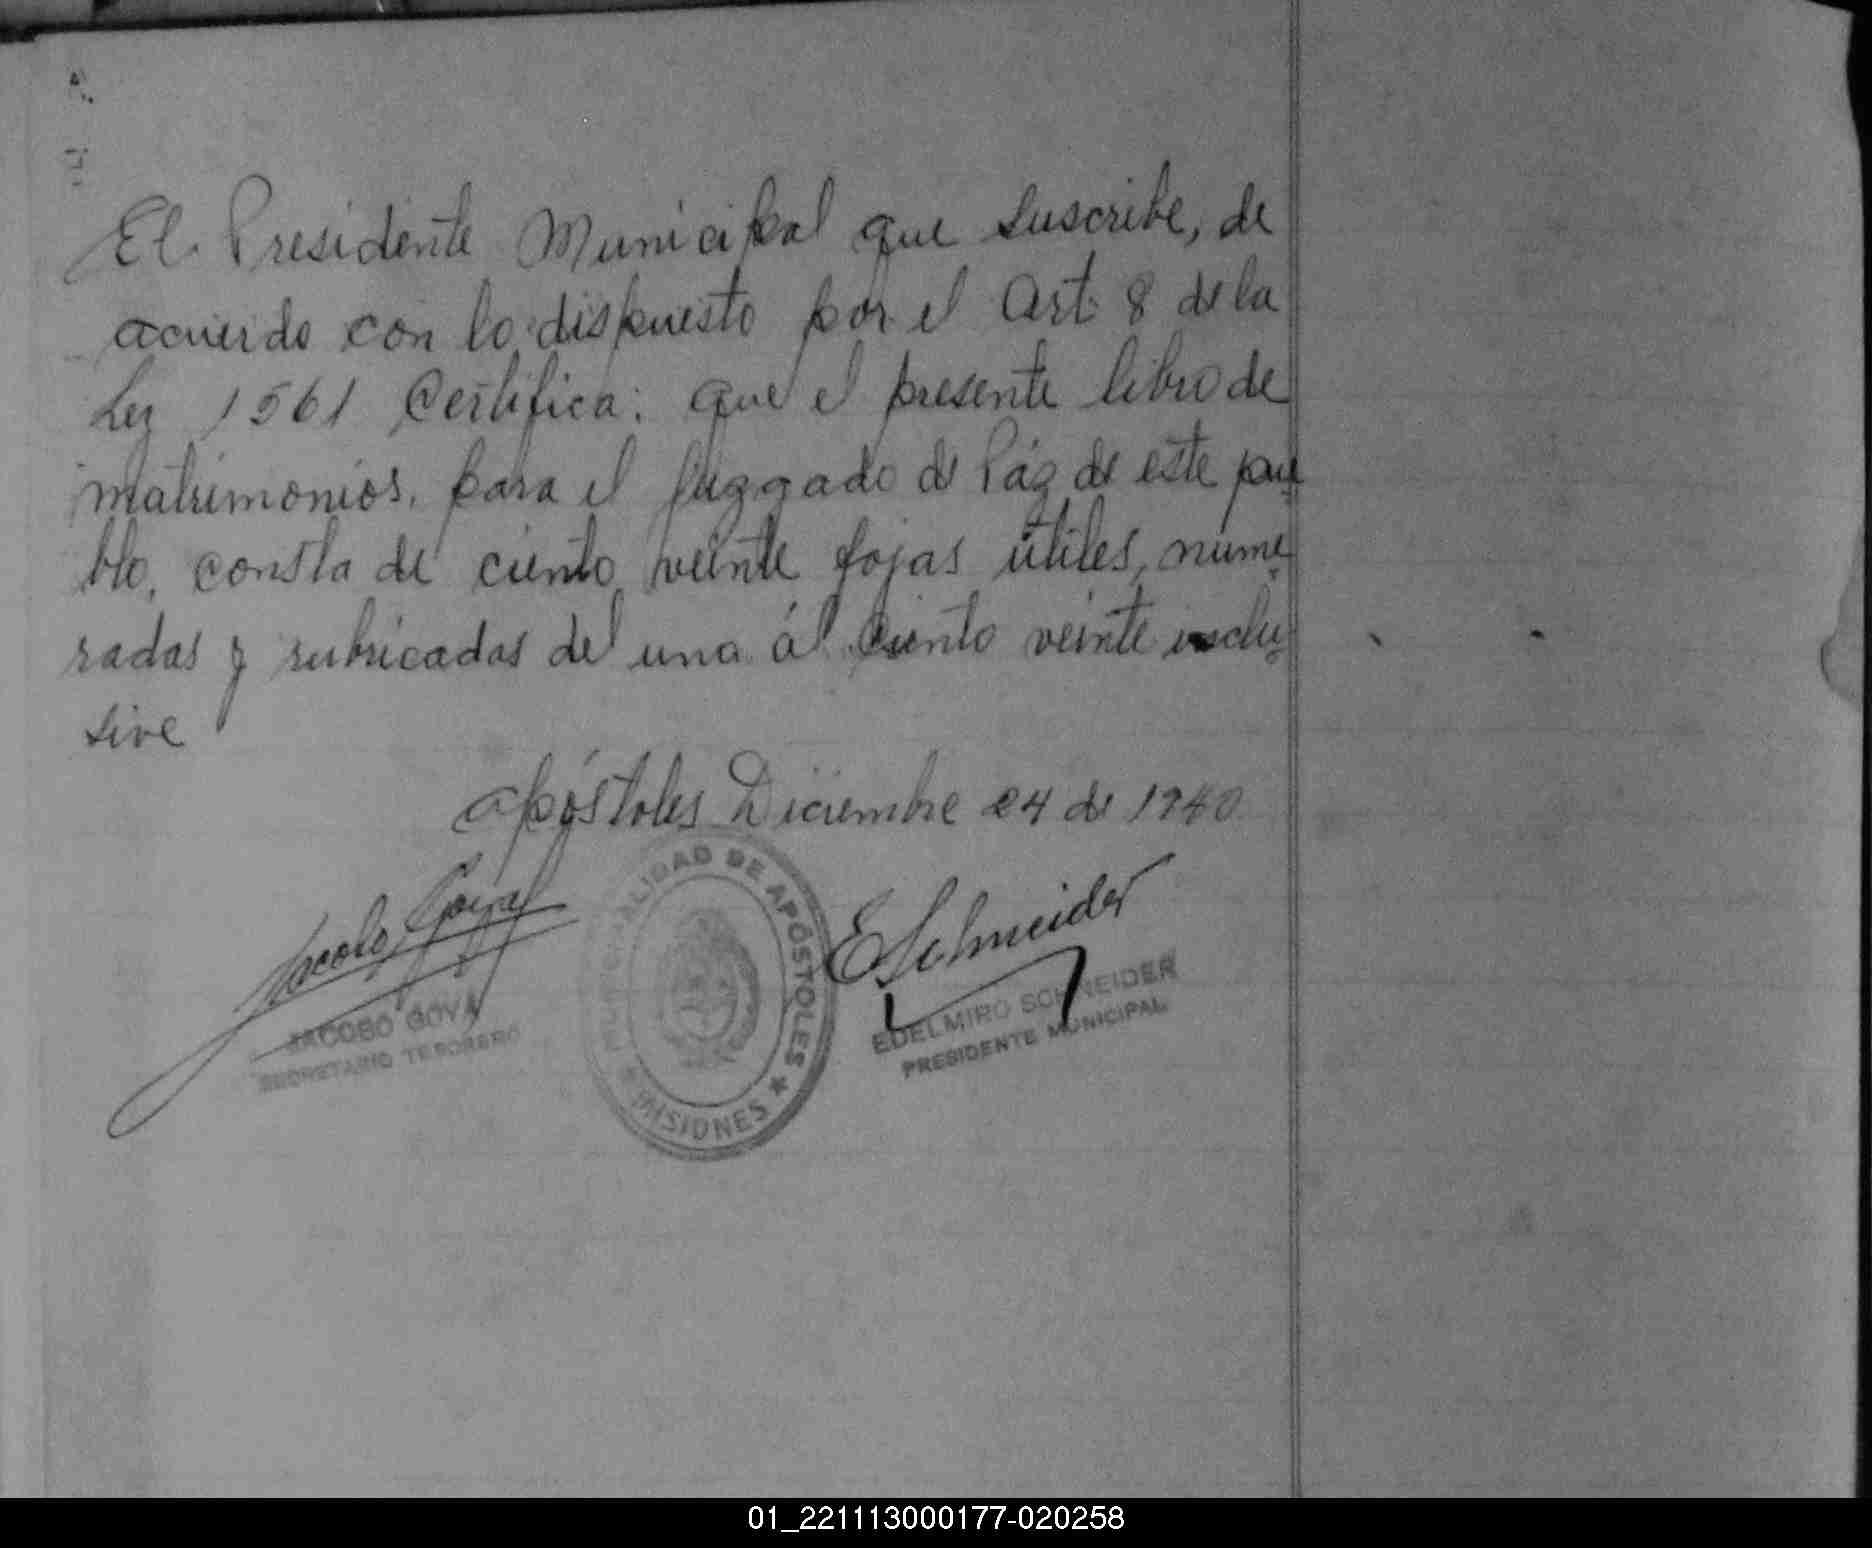 El Presidente Municipal que suscribe, de
acuerdo con lo dispuesto por el Art. 8 de la
Ley 1561 Certifica: que el presente libro de
matrimonios, para el Juzgado de Páz de este pue-
blo, consta de ciento veinte fojas útiles, nume-
radas y rubricadas del una ál ciento veinte inclu-
sive
Apóstoles Diciembre 24 de 1940
Jacobo Goya
ESchneider
MUNICIPALIDAD DE APÓSTOLES
★ MISIONES ★
JACOBO GOYA
SECRETARIO TESORERO
EDELMIRO SCHNEIDER
PRESIDENTE MUNICIPAL
01_221113000177-020258